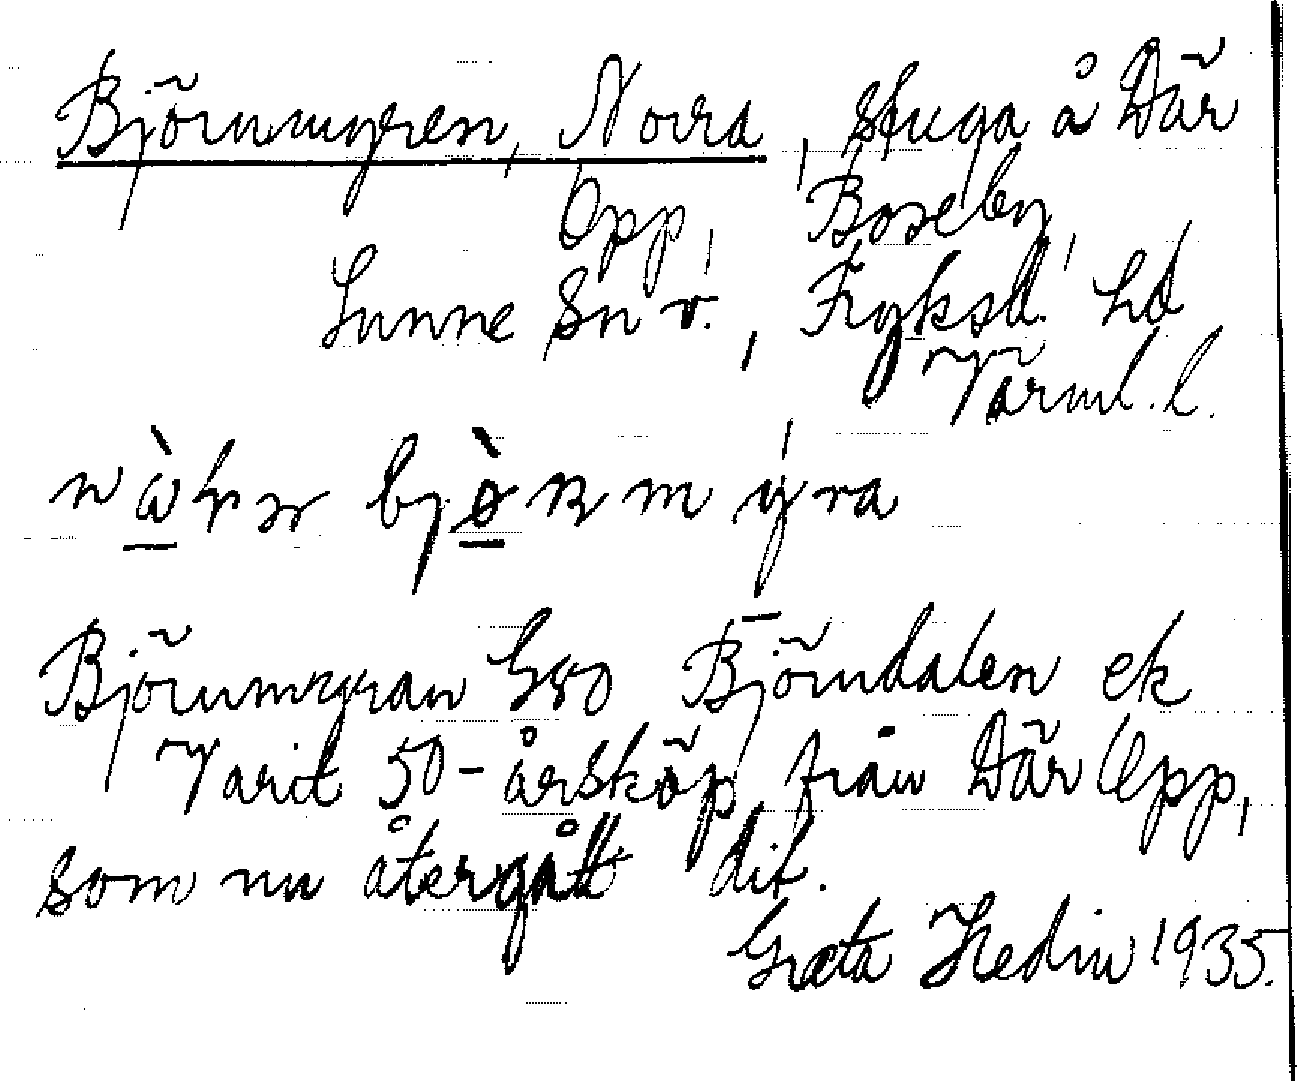 Björnmyren, Norra, stuga å Där
Opp, Boseby,
Sunne Sn v., Fryksd. hd
Värml. l.
Björnmyran G80 Björndalen ek
Varit 50-årsköp från Där Opp,
som nu återgått dit.
Greta Hedin 1935.